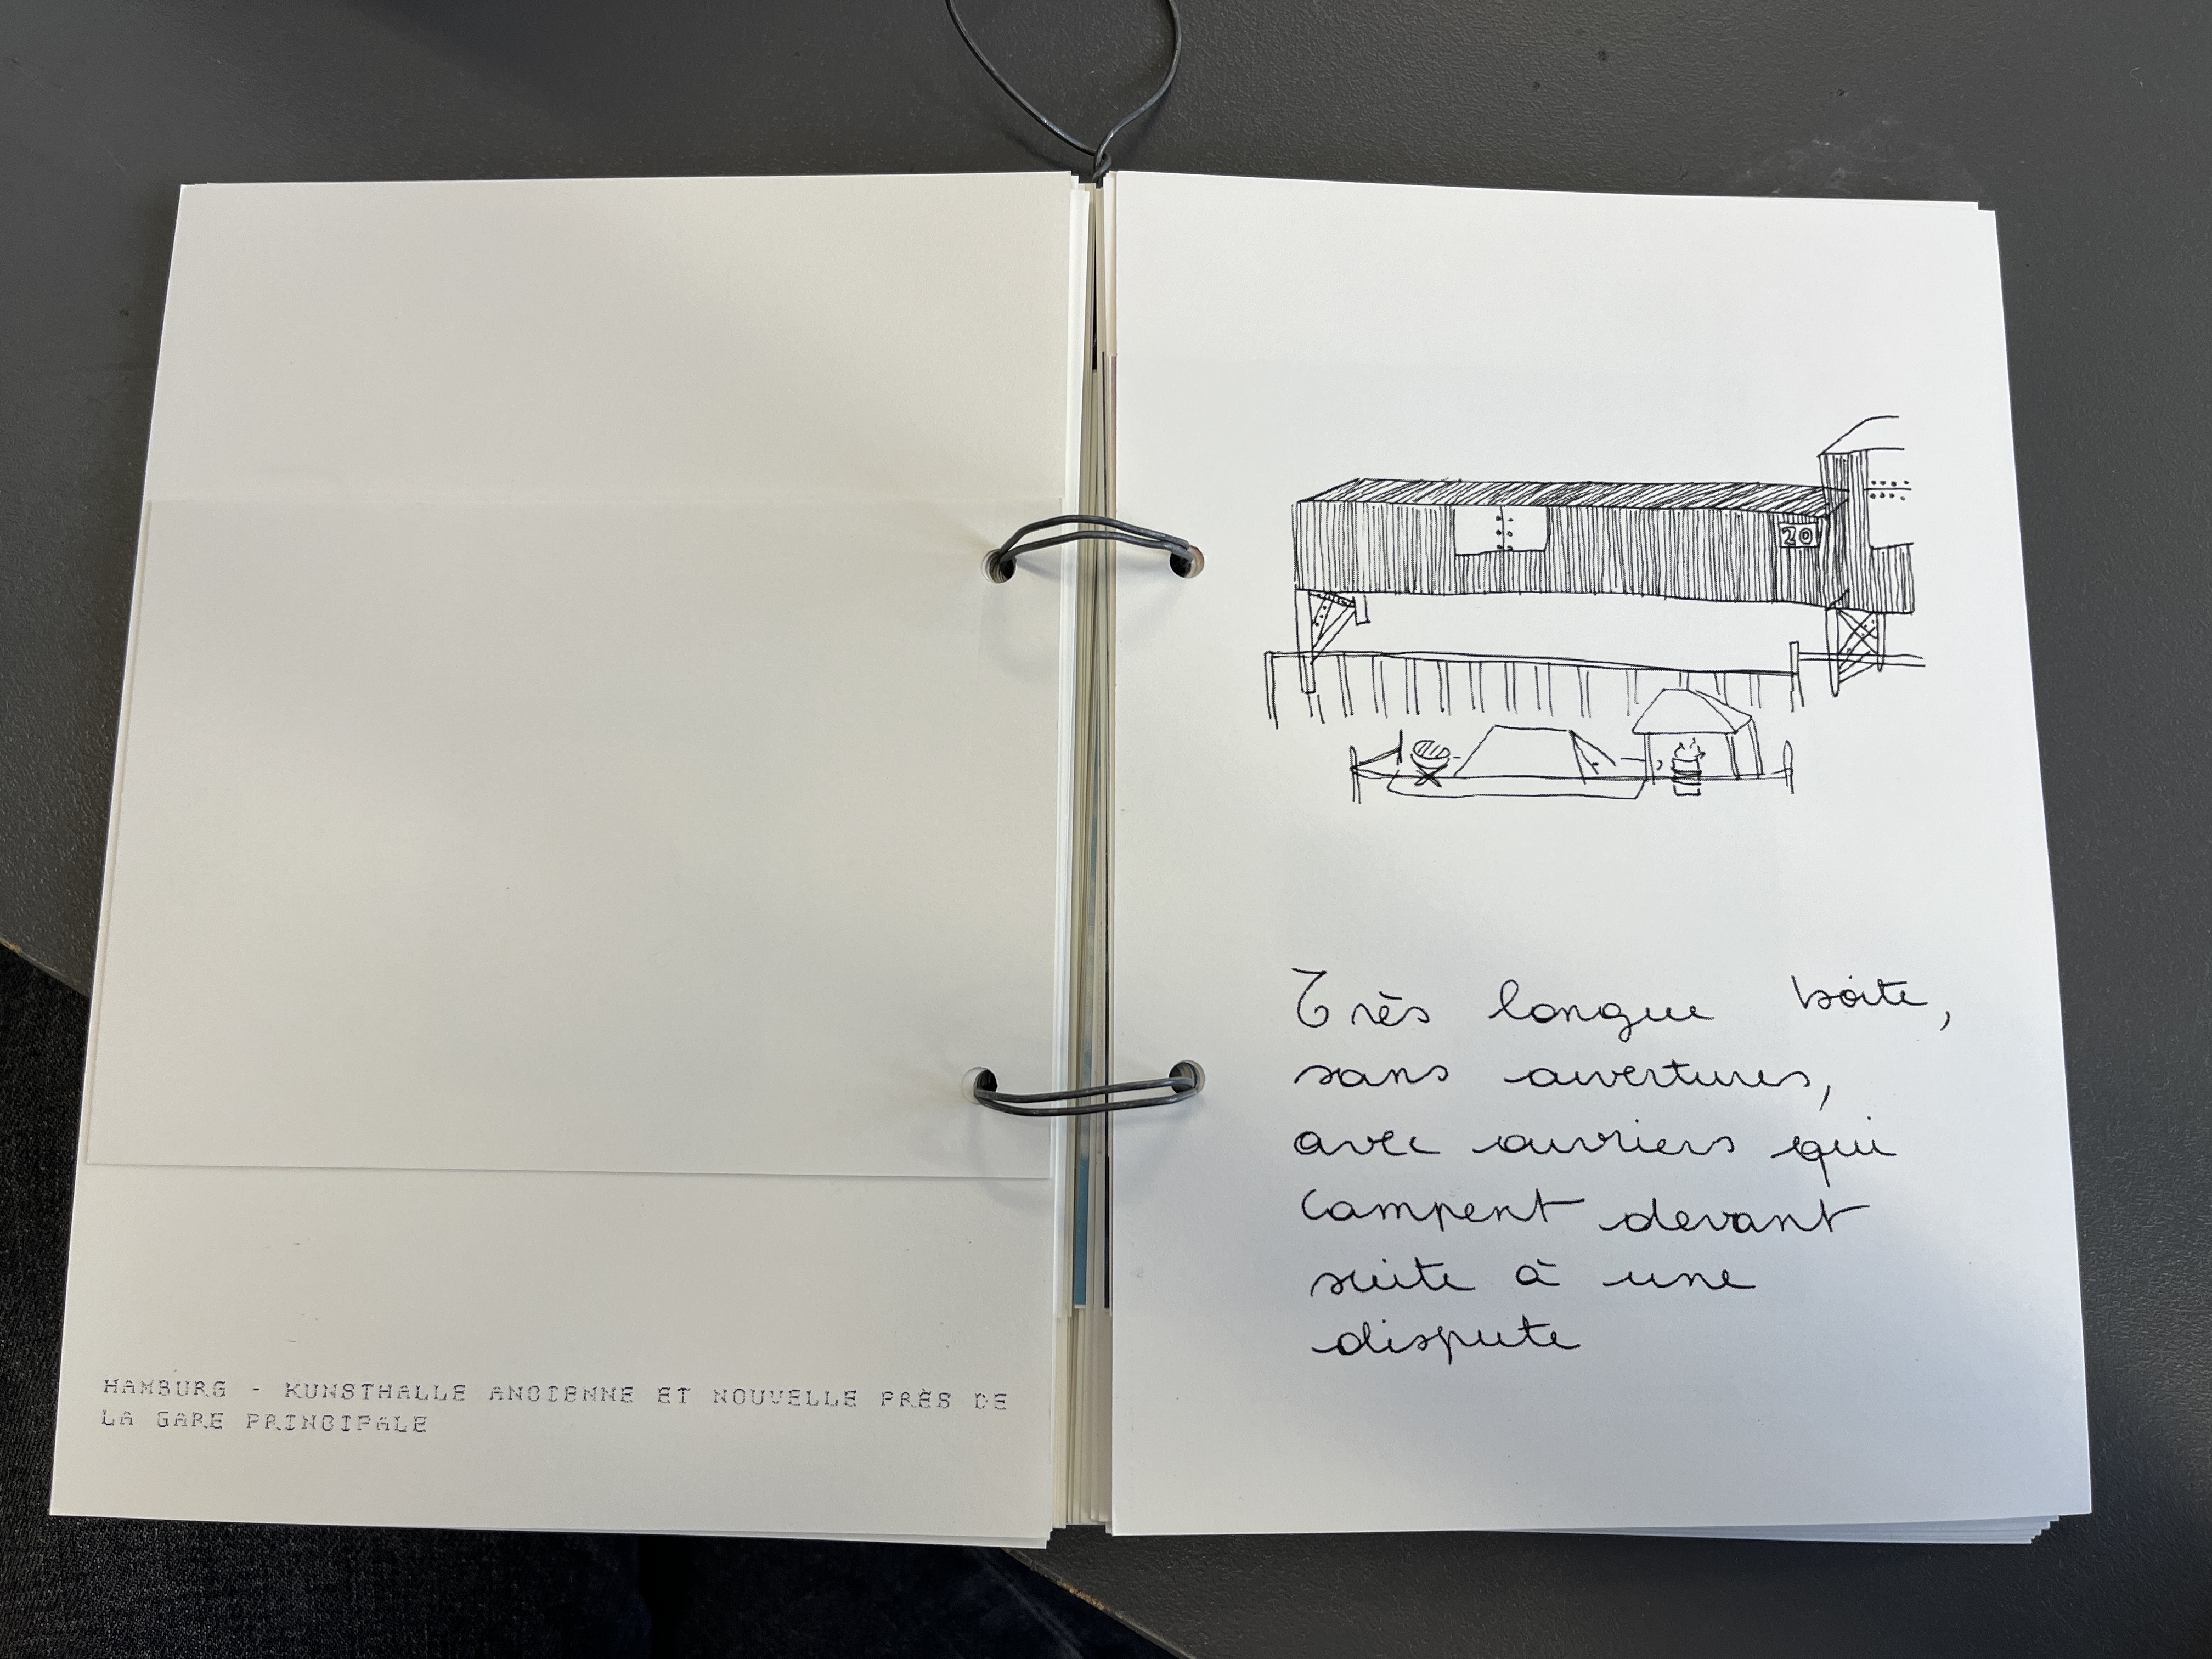 HAMBURG - KUNSTHALLE ANCIENNE ET NOUVELLE PRÈS DE
LA GARE PRINCIPALE
20
Très longue boite,
sans ouvertures,
avec ouvriers qui
campent devant
suite à une
dispute